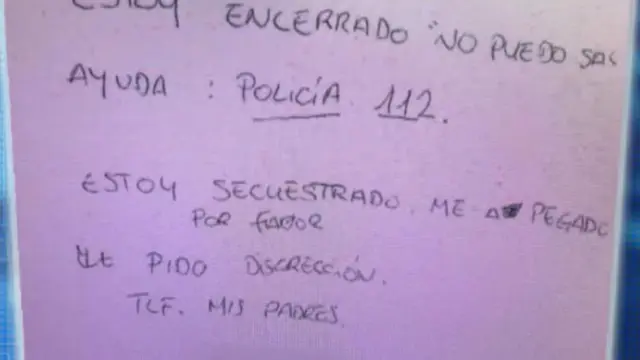 ESTOY ENCERRADO "NO PUEDO
AYUDA : POLICÍA 112.
ESTOY SECUESTRADO. ME A PEGADO
POR FAVOR
LE PIDO DISCRECCIÓN.
TLF. MIS PADRES.